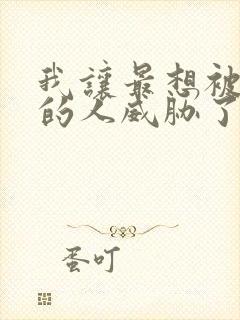 我讓最想被
的人威胁了
蛋叮